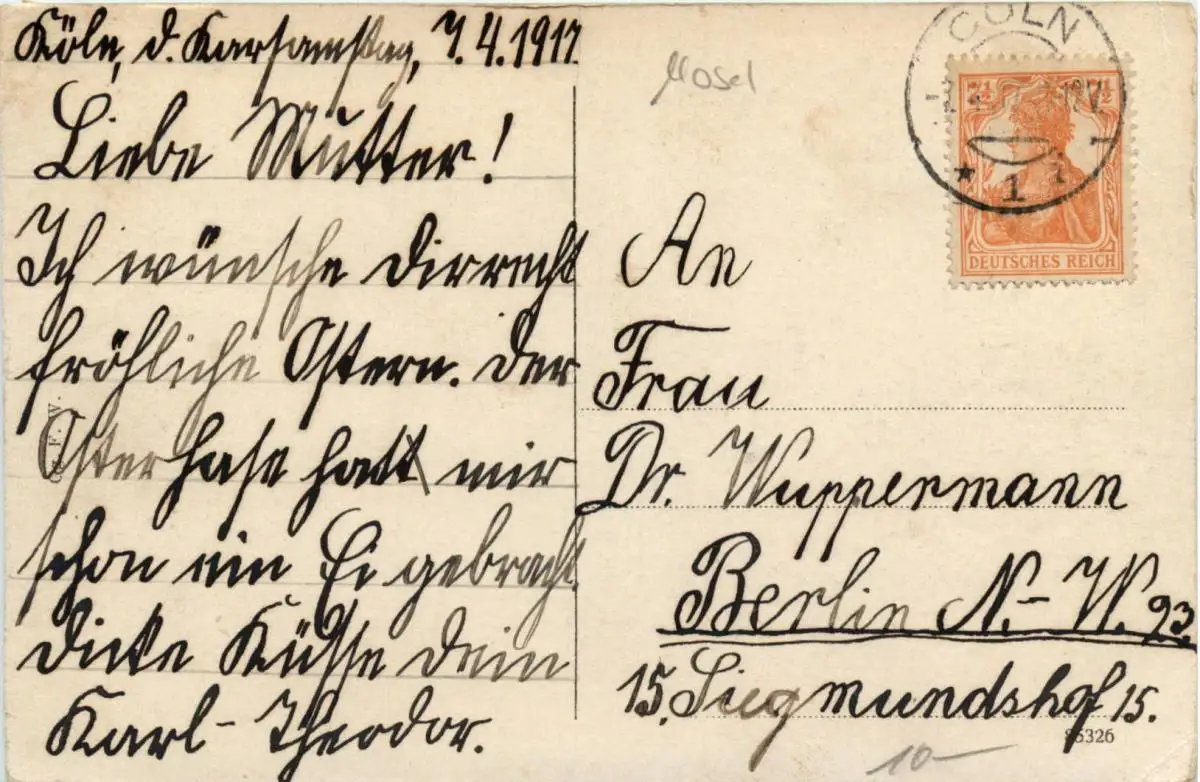 Köln, d. Karsamstag, 7.4.1917.
Liebe Mutter!
Ich wünsche dir recht
fröhliche Ostern. Der
Osterhase hatt mir
schon ein Ei gebracht.
Dicke Küsse dein
Karl-Theodor.
Mosel
CÖLN
1
7½ 7½
DEUTSCHES REICH
An
Frau
Dr. Wuppermann
Berlin N.-W. 23.
15. Siegmundshof 15.
85326
10-